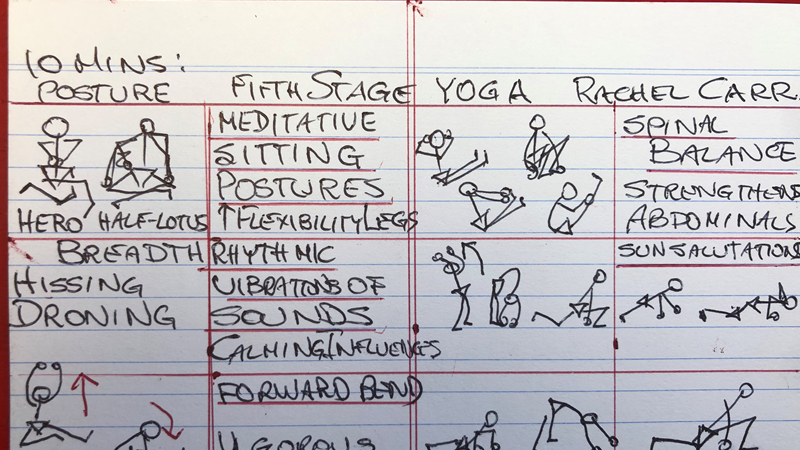 10 MINS:
POSTURE FIFTH STAGE YOGA RACHEL CARR
MEDITATIVE
SITTING
POSTURES
↑FLEXIBILITY LEGS
HERO HALF-LOTUS
SPINAL
BALANCE
STRENGTHENS
ABDOMINALS
BREADTH
HISSING
DRONING
RHYTHMIC
VIBRATIONS OF
SOUNDS
CALMING INFLUENCES
SUN SALUTATIONS
FORWARD BEND
VIGOROUS